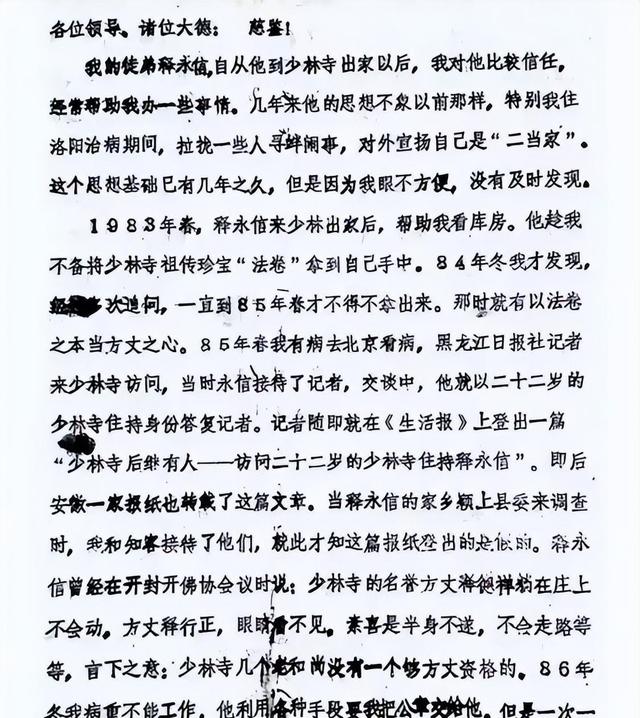 各位领导。诸位大德：　慈鉴！
我的徒弟释永信，自从他到少林寺出家以后，我对他比较信任，
经常帮助我办一些事情。几年来他的思想不象以前那样，特别我住
洛阳治病期间，拉拢一些人寻衅闹事，对外宣扬自己是“二当家”。
这个思想基础已有几年之久，但是因为我眼不方便，没有及时发现。
１９８３年春，释永信来少林出家后，帮助我看库房。他趁我
不备将少林寺祖传珍宝“法卷”拿到自己手中。８４年冬我才发现，
经多次追问，一直到８５年春才不得不拿出来。那时就有以法卷
之本当方丈之心。８５年春我有病去北京看病，黑龙江日报社记者
来少林寺访问，当时永信接待了记者，交谈中，他就以二十二岁的
少林寺住持身份答复记者。记者随即就在《生活报》上登出一篇
“少林寺后继有人——访问二十二岁的少林寺住持释永信”。即后
安徽一家报纸也转载了这篇文章。当释永信的家乡颍上县委来调查
时，我和知客接待了他们，就此才知这篇报纸登出的是假的。释永
信曾经在开封开佛协会议时说：少林寺的名誉方丈释德禅躺在庄上
不会动。方丈释行正，眼睛看不见。素喜是半身不遂，不会走路等
等，言下之意：少林寺几个老和尚没有一个够方丈资格的。８６年
冬我病重不能工作，他利用各种手段要我把公章交给他，但是一次一